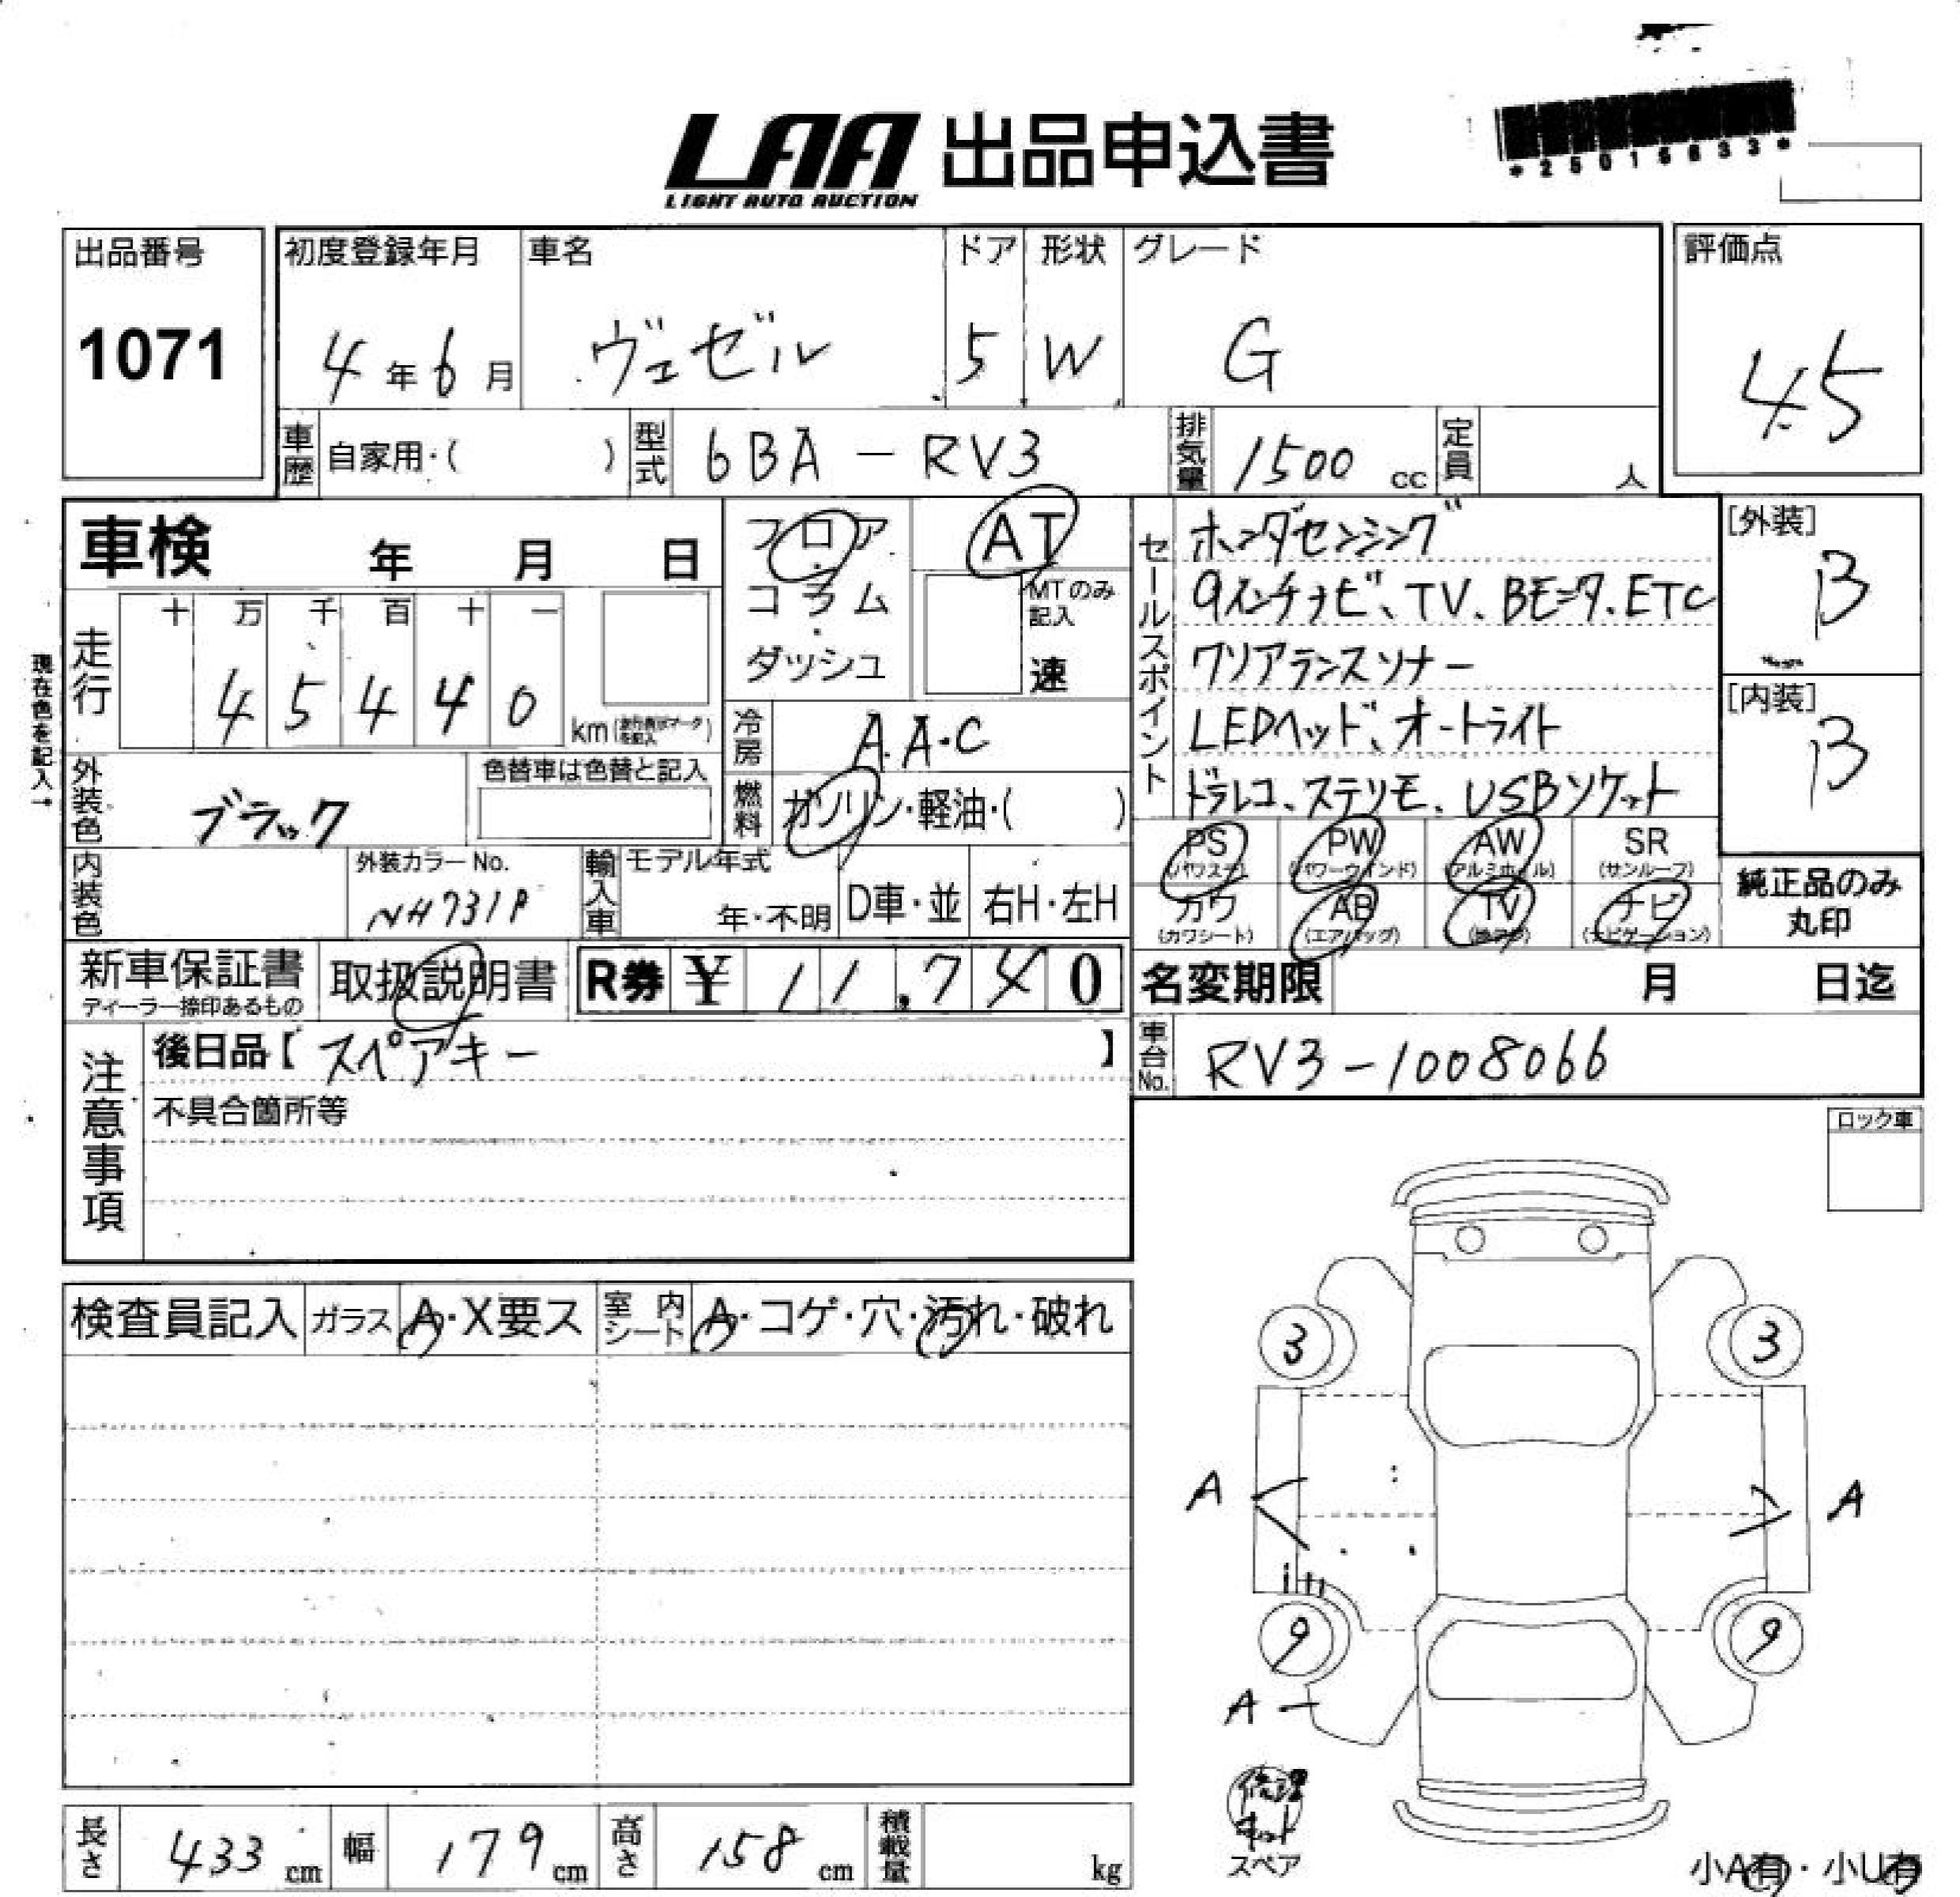 LAA 出品申込書
LIGHT AUTO AUCTION
*25015633*
出品番号 初度登録年月 車名 ドア 形状 グレード 評価点
1071 4年6月 ヴェゼル 5 W G 4.5
車歴 自家用・( ) 型式 6BA-RV3 排気量 1500cc 定員 人
車検 年 月 日
フロア・コラム・ダッシュ
AT
MTのみ記入
速
走行 十 万 千 百 十 一
4 5 4 4 0 km
現在色を記入→
外装色 ブラック
色替車は色替と記入
冷房 A.A.C
燃料 ガソリン・軽油・( )
セールスポイント
ホンダセンシング
9インチナビ、TV、Bモニタ、ETC
クリアランスソナー
LEDヘッド、オートライト
ドラレコ、ステリモ、USBソケット
[外装] B
[内装] B
内装色 外装カラーNo. NH731P
輸入車 モデル年式 年・不明 D車・並 右H・左H
PS (パワステ) PW (パワーウインド) AW (アルミホイル) SR (サンルーフ)
カワ (カワシート) AB (エアバッグ) TV ナビ (ナビゲーション)
純正品のみ
丸印
新車保証書 ディーラー捺印あるもの
取扱説明書
R券 ¥ 11,740
名変期限 月 日迄
注意事項
後日品【 スペアキー 】
不具合箇所等
車台No. RV3-1008066
ロック車
検査員記入 ガラス A・X要ス 室内シート A・コゲ・穴・汚れ・破れ
3 3
A A
9 9
A
修理キット
スペア
長さ 433 cm 幅 179 cm 高さ 158 cm 積載量 kg
小A有・小U有